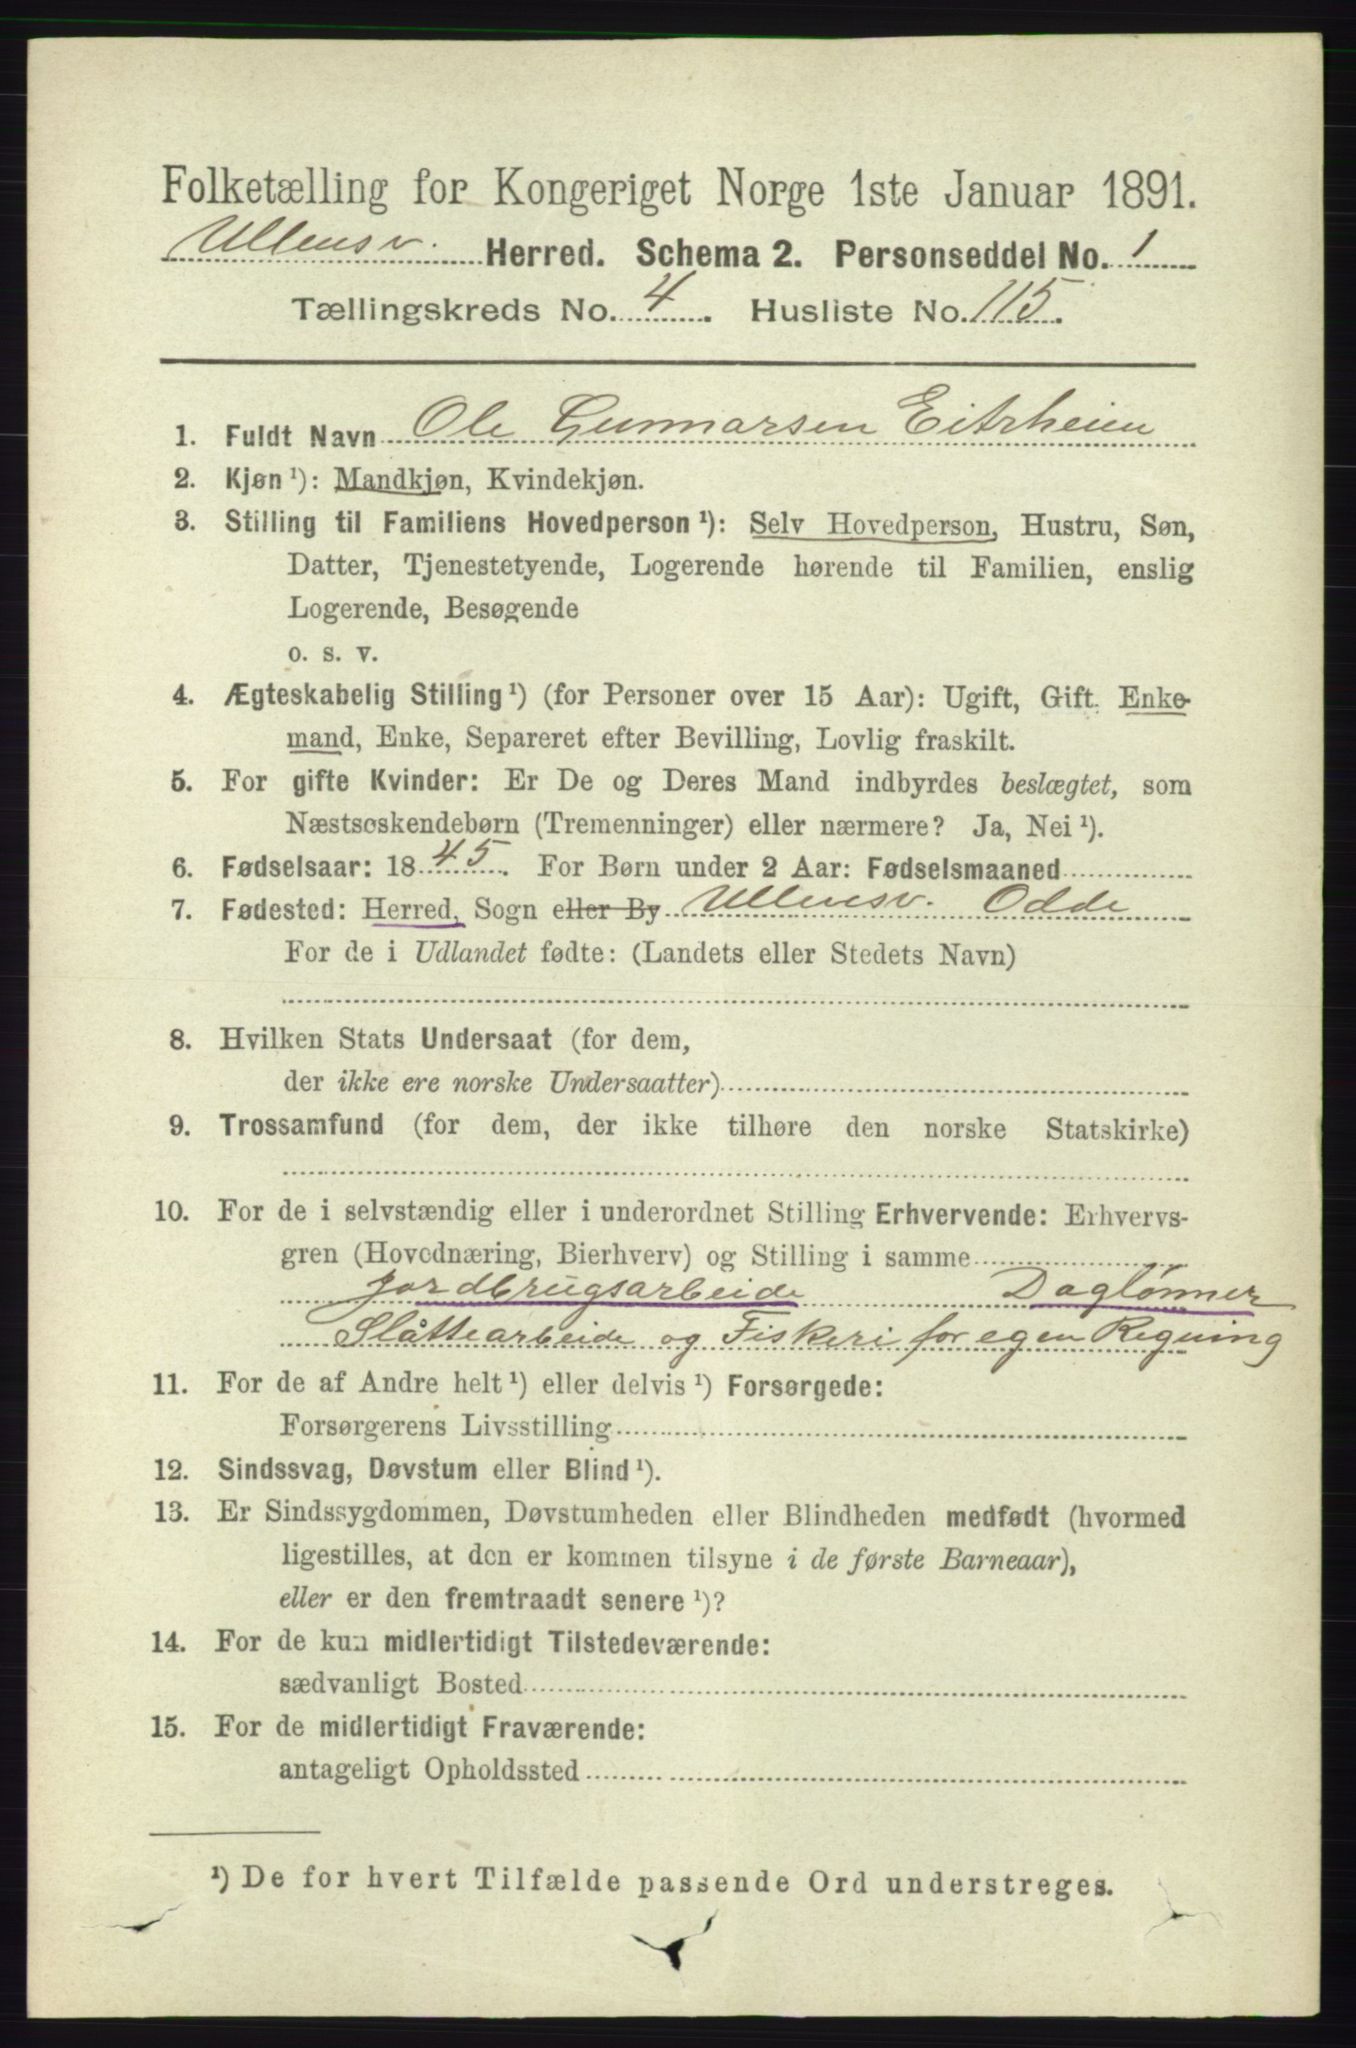 Folketælling for Kongeriget Norge 1ste Januar 1891.
Ullensv. Herred. Schema 2. Personseddel No. 1
Tællingskreds No. 4. Husliste No. 115.
1. Fuldt Navn Ole Gunnarsen Eitrheim
2. Kjøn ¹): Mandkjøn, Kvindekjøn.
3. Stilling til Familiens Hovedperson ¹): Selv Hovedperson, Hustru, Søn,
Datter, Tjenestetyende, Logerende hørende til Familien, enslig
Logerende, Besøgende
o. s. v.
4. Ægteskabelig Stilling ¹) (for Personer over 15 Aar): Ugift, Gift, Enke-
mand, Enke, Separeret efter Bevilling, Lovlig fraskilt.
5. For gifte Kvinder: Er De og Deres Mand indbyrdes beslægtet, som
Næstsøskendebørn (Tremenninger) eller nærmere? Ja, Nei ¹).
6. Fødselsaar: 1845. For Børn under 2 Aar: Fødselsmaaned
7. Fødested: Herred, Sogn eller By Ullensv. Odde
For de i Udlandet fødte: (Landets eller Stedets Navn)
8. Hvilken Stats Undersaat (for dem,
der ikke ere norske Undersaatter)
9. Trossamfund (for dem, der ikke tilhøre den norske Statskirke)
10. For de i selvstændig eller i underordnet Stilling Erhvervende: Erhvervs-
gren (Hovednæring, Bierhverv) og Stilling i samme
Jordbrugsarbeide Daglønner
Slåttearbeide og Fiskeri for egen Regning
11. For de af Andre helt ¹) eller delvis ¹) Forsørgede:
Forsørgerens Livsstilling
12. Sindssvag, Døvstum eller Blind ¹).
13. Er Sindssygdommen, Døvstumheden eller Blindheden medfødt (hvormed
ligestilles, at den er kommen tilsyne i de første Barneaar),
eller er den fremtraadt senere ¹)?
14. For de kun midlertidigt Tilstedeværende:
sædvanligt Bosted
15. For de midlertidigt Fraværende:
antageligt Opholdssted
¹) De for hvert Tilfælde passende Ord understreges.